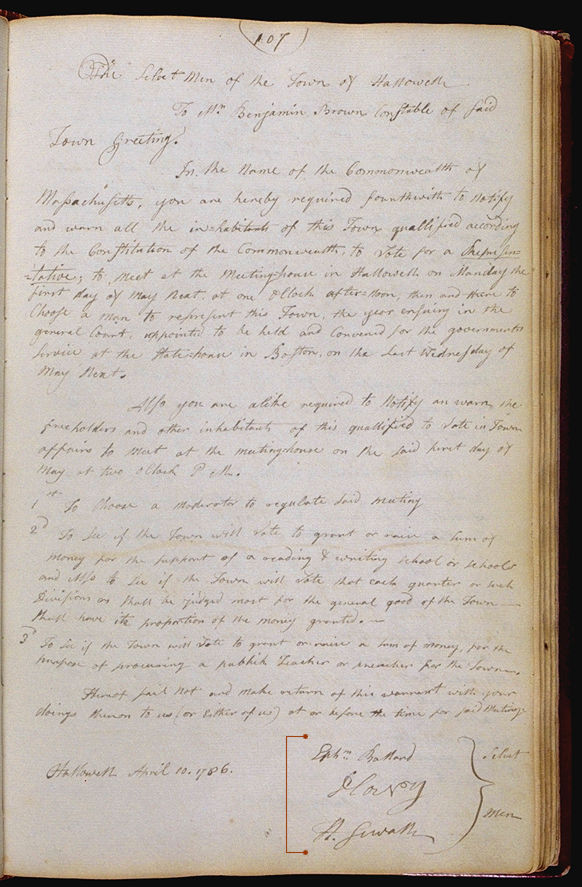 107
The Select Men of the Town of Hallowell
To Mr. Benjamin Brown Constable of said
Town Greeting.
In the Name of the Commonwealth of
Massachusetts, you are hereby required fourthwith to Notify
and warn all the in=habitents of this Town quallified according
to the Constitation of the Commonwealth, to Vote for a Represen=
=tative; to, Meet at the Meeting=house in Hallowell on Manday the
first day of May Next. at one oClock after=noon, then, and there to
Choose a man to represent this Town, the year ensuing in the
general Court, appointed to be held and Convened for the governments
Service at the State=house in Boston, on the last Wednesday of
May Next.
Also you are alike required to Notify an warn the
freeholders and other inhabitants of this quallified to Vote in Town
affairs to Meet at the meetinghouse on the said first day of
May at two oClock P.M.
1st To Choose a Moderator to regulate said meeting
2d To See if the Town will Vote to grant or raise a Sum of
money for the support of a reading & writing school or schools
and Also to See if the Town will Vote that each quarter or such
Divisions as shall be judged most for the general good of the Town
shall have its proportion of the money granted.
3d To See if the Town will Vote to grant or raise a Sum of money, for the
purpose of procuring a publick Teacher or preacher for the Town.
Hereof fail not and make return of this warrent with your
doings thereon to us (or Either of us) at or before the time for said Meeting
Hallowell April 10. 1786.
Ephm Ballard
H. Sewall
Select
Men